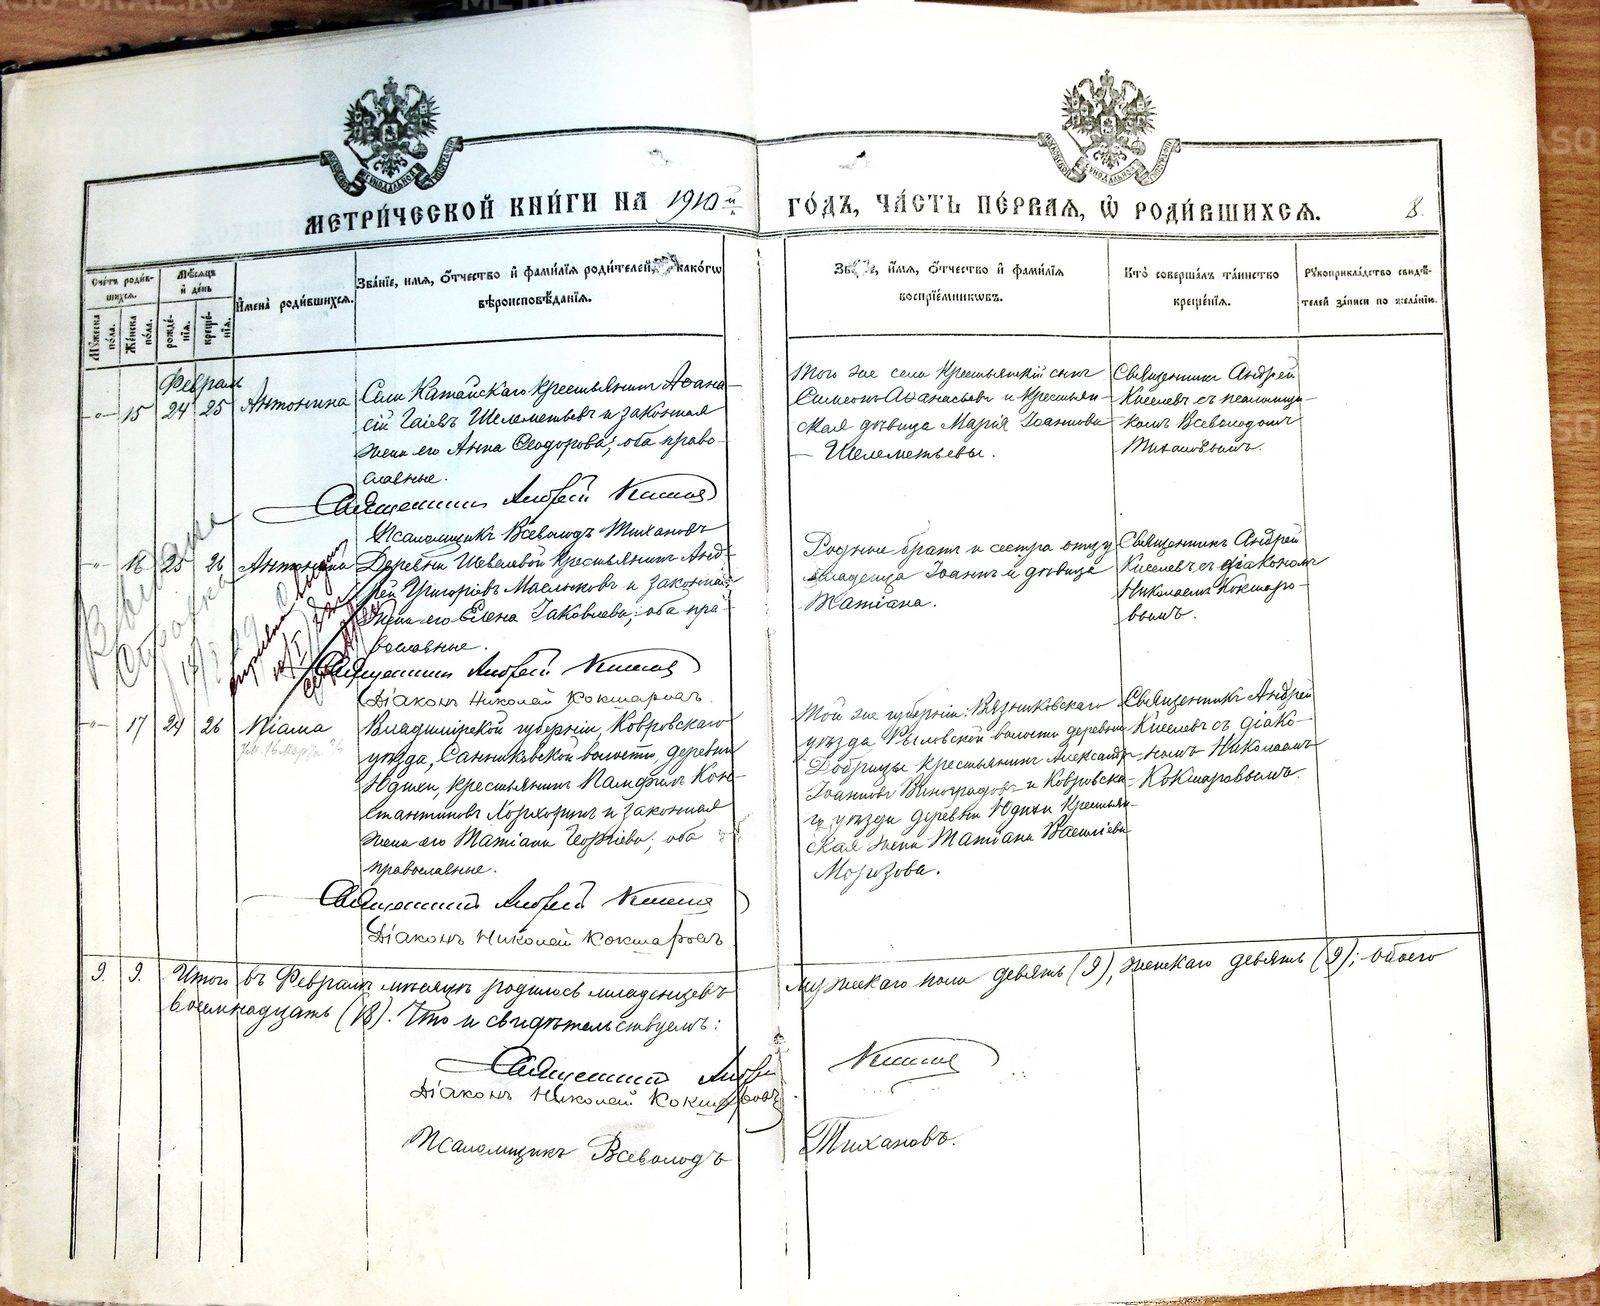 METRIKI.GASO-URAL.RU
МЕТРИ́ЧЕСКОЙ КНИ́ГИ НА 1910й
ГО́ДЪ, ЧА́СТЬ ПЕ́РВАЯ, Ѡ РОДИ́ВШИХСЯ.
8.
Сче́тъ роди́в-
шихся.
Мѣ́сяцъ
и́ де́нь
Мꙋжеска по́ла.
Же́нска по́ла.
рожде́-
нїя.
креще́-
нїя.
И́мена̀ роди́вшихся.
Зва́нїе, и́мя, о́тчество и́ фами́лїя роди́телей, какого
вѣроисповѣ́данїя.
и́мя, о́тчество и́ фами́лїя
воспрїе́мниковъ.
Кто̀ соверша́лъ та́инство
креще́нїя.
Рꙋкоприкла́дство свидѣ́-
телей за́писи по жела́нїю.
Февраля
-„- 15 24 25 Антонина
Села Катайскаго крестьянинъ Аѳана-
сій Гаіевъ Шелементьевъ и законная
жена его Анна Ѳеодорова; оба право-
славные.
Священникъ Андрей Киселевъ
Псаломщикъ Всеволодъ Тихановъ
Того же села крестьянскій сынъ
Симеонъ Аѳанасьевъ и крестьян-
ская дѣвица Марія Іоаннова
— Шелементьевы.
Священникъ Андрей
Киселевъ съ псаломщи-
комъ Всеволодомъ
Тихановымъ.
-„- 16 25 26 Антонина
Деревни Шевелевой крестьянинъ Анд-
рей Григорьевъ Маслюковъ и законная
жена его Елена Іаковлева; оба пра-
вославные.
Священникъ Андрей Киселевъ
Діаконъ Николай Кокшаровъ.
Родные братъ и сестра отцу
младенца Іоаннъ и дѣвица
Татіана.
Священникъ Андрей
Киселевъ съ діакономъ
Николаемъ Кокшаро-
вымъ.
Выдана
справка
-„- 17 24 26 Піама
Владимірской губерніи, Ковровскаго
уѣзда, Санниковской волости деревни
Юдихи, крестьянинъ Памфилъ Кон-
стантиновъ Хорхоринъ и законная
жена его Татіана Георгіева; оба
православные.
Священникъ Андрей Киселевъ
Діаконъ Николай Кокшаровъ
Той же губерніи: Вязниковскаго
уѣзда Рыловской волости деревни
Добрицы крестьянинъ Александръ
Іоанновъ Виноградовъ и Ковровска-
го уѣзда деревни Юдихи крестьян-
ская жена Татіана Василіева
Морозова.
Священникъ Андрей
Киселевъ съ діако-
номъ Николаемъ
Кокшаровымъ.
9. 9. Итого въ Февралѣ мѣсяцѣ родилось младенцевъ мужескаго пола девять (9), женскаго девять (9); обоего
восемнадцать (18). Что и свидѣтельствуемъ:
Священникъ Андрей Киселевъ
Діаконъ Николай Кокшаровъ
Псаломщикъ Всеволодъ Тихановъ.